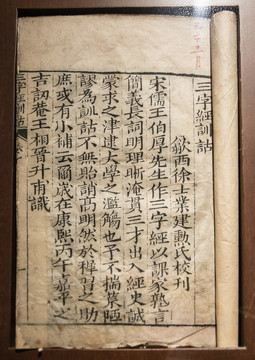 三字經訓詁
歙西徐士業建勳氏校刊
宋儒王伯厚先生作三字經以課家塾言
簡義長詞明理晰淹貫三才出入經史誠
蒙求之津逮大學之濫觴也予不揣陋
謬為訓詁不無貽誚高明然於稺習之助
庶或有小補云爾歲在康熙丙午嘉平之
吉訒菴王相晉升甫識
三字經訓詁